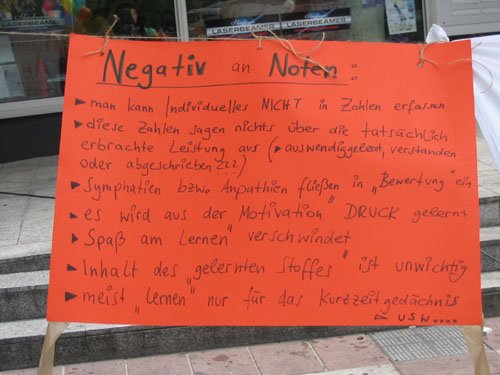 LASERBEAMER LASERBEAMER
Negativ an Noten:
▸ man kann Individuelles NICHT in Zahlen erfassen
▸ diese Zahlen sagen nichts über die tatsächlich
erbrachte Leistung aus (▸ auswendiggelernt, verstanden
oder abgeschrieben???)
▸ Symphatien bzw. Anpathien fließen in „Bewertung" ein
▸ es wird aus der Motivation „DRUCK" gelernt
▸ „Spaß am Lernen" verschwindet
▸ Inhalt des „gelernten Stoffes" ist unwichtig
▸ meist „lernen" nur für das Kurzzeitgedächnis
▸ usw....